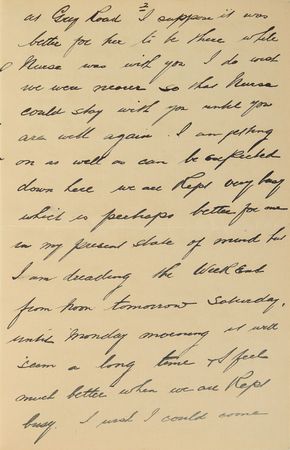 2
as Grey Road I suppose it was
better for her to be there while
Nurse was with you I do wish
we were nearer so that Nurse
could stay with you until you
are well again. I am getting
on as well as can be expected
down here we are Kept very busy
which is perhaps better for me
in my present state of mind but
I am dreading the Week End
from Noon tomorrow Saturday,
until Monday morning it will
seem a long time & I feel
much better when we are Kept
busy. I wish I could come